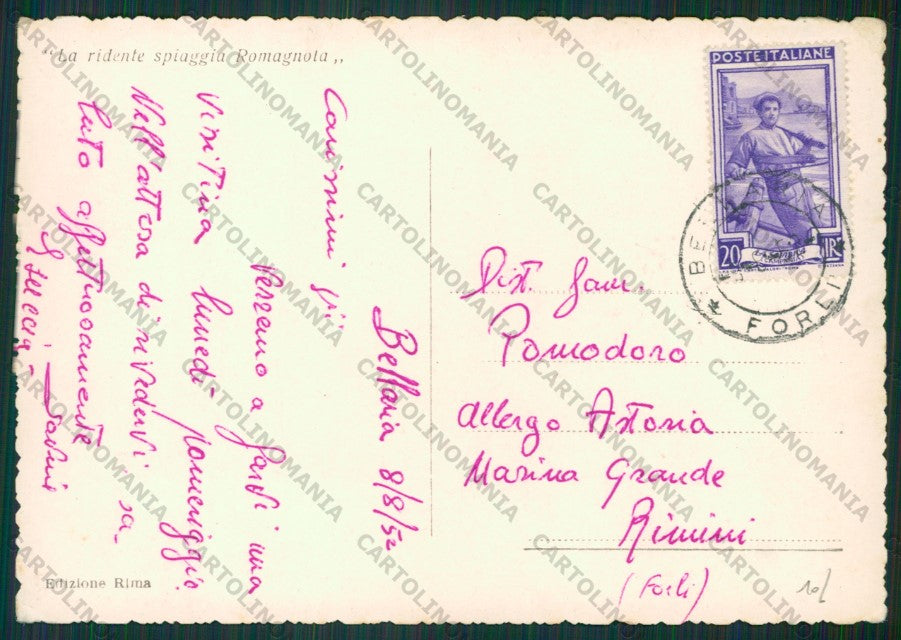 "La ridente spiaggia Romagnola„
Bellaria 8/8/52
Carissimi
Verremo a farvi una
visitina lunedì pomeriggio.
Nell'attesa di rivedervi sa-
luto affettuosamente
POSTE ITALIANE
20 LIRE
BELLARIA
* FORLI *
Dist. Fam.
Pomodoro
Albergo Astoria
Marina Grande
Rimini
(Forlì)
Edizione Rima
10/
CARTOLINOMANIA